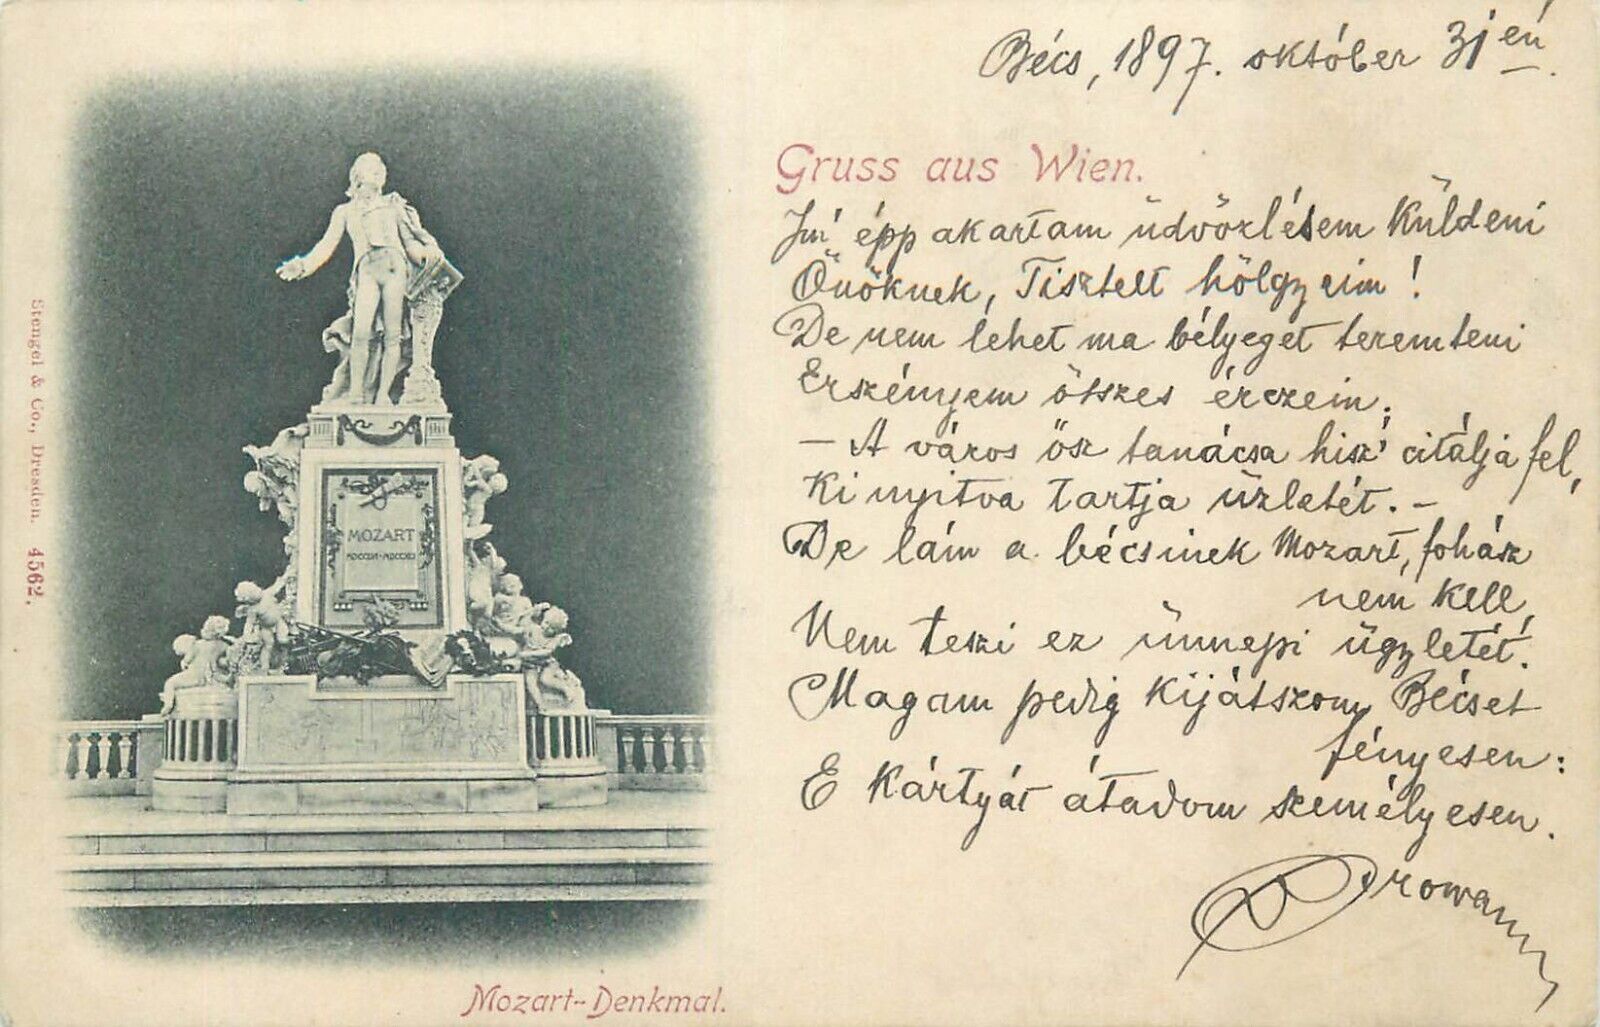 Bécs, 1897. október 31én.
Gruss aus Wien.
épp akartam üdvözlésem küldeni
Önöknek, Tisztelt hölgyeim!
De nem lehet ma bélyeget teremteni
Erszényem összes érczein.
– A város ősz tanácsa hisz' citálja fel,
Ki nyitva tartja üzletét. –
De lám a bécsinek Mozart, fohász
nem kell,
Nem teszi ez ünnepi ügyletét.
Magam pedig kijátszom Bécset
fényesen:
E kártyát átadom személyesen.
MOZART
MDCCLVI-MDCCXCI
Stengel & Co., Dresden. 4562.
Mozart-Denkmal.